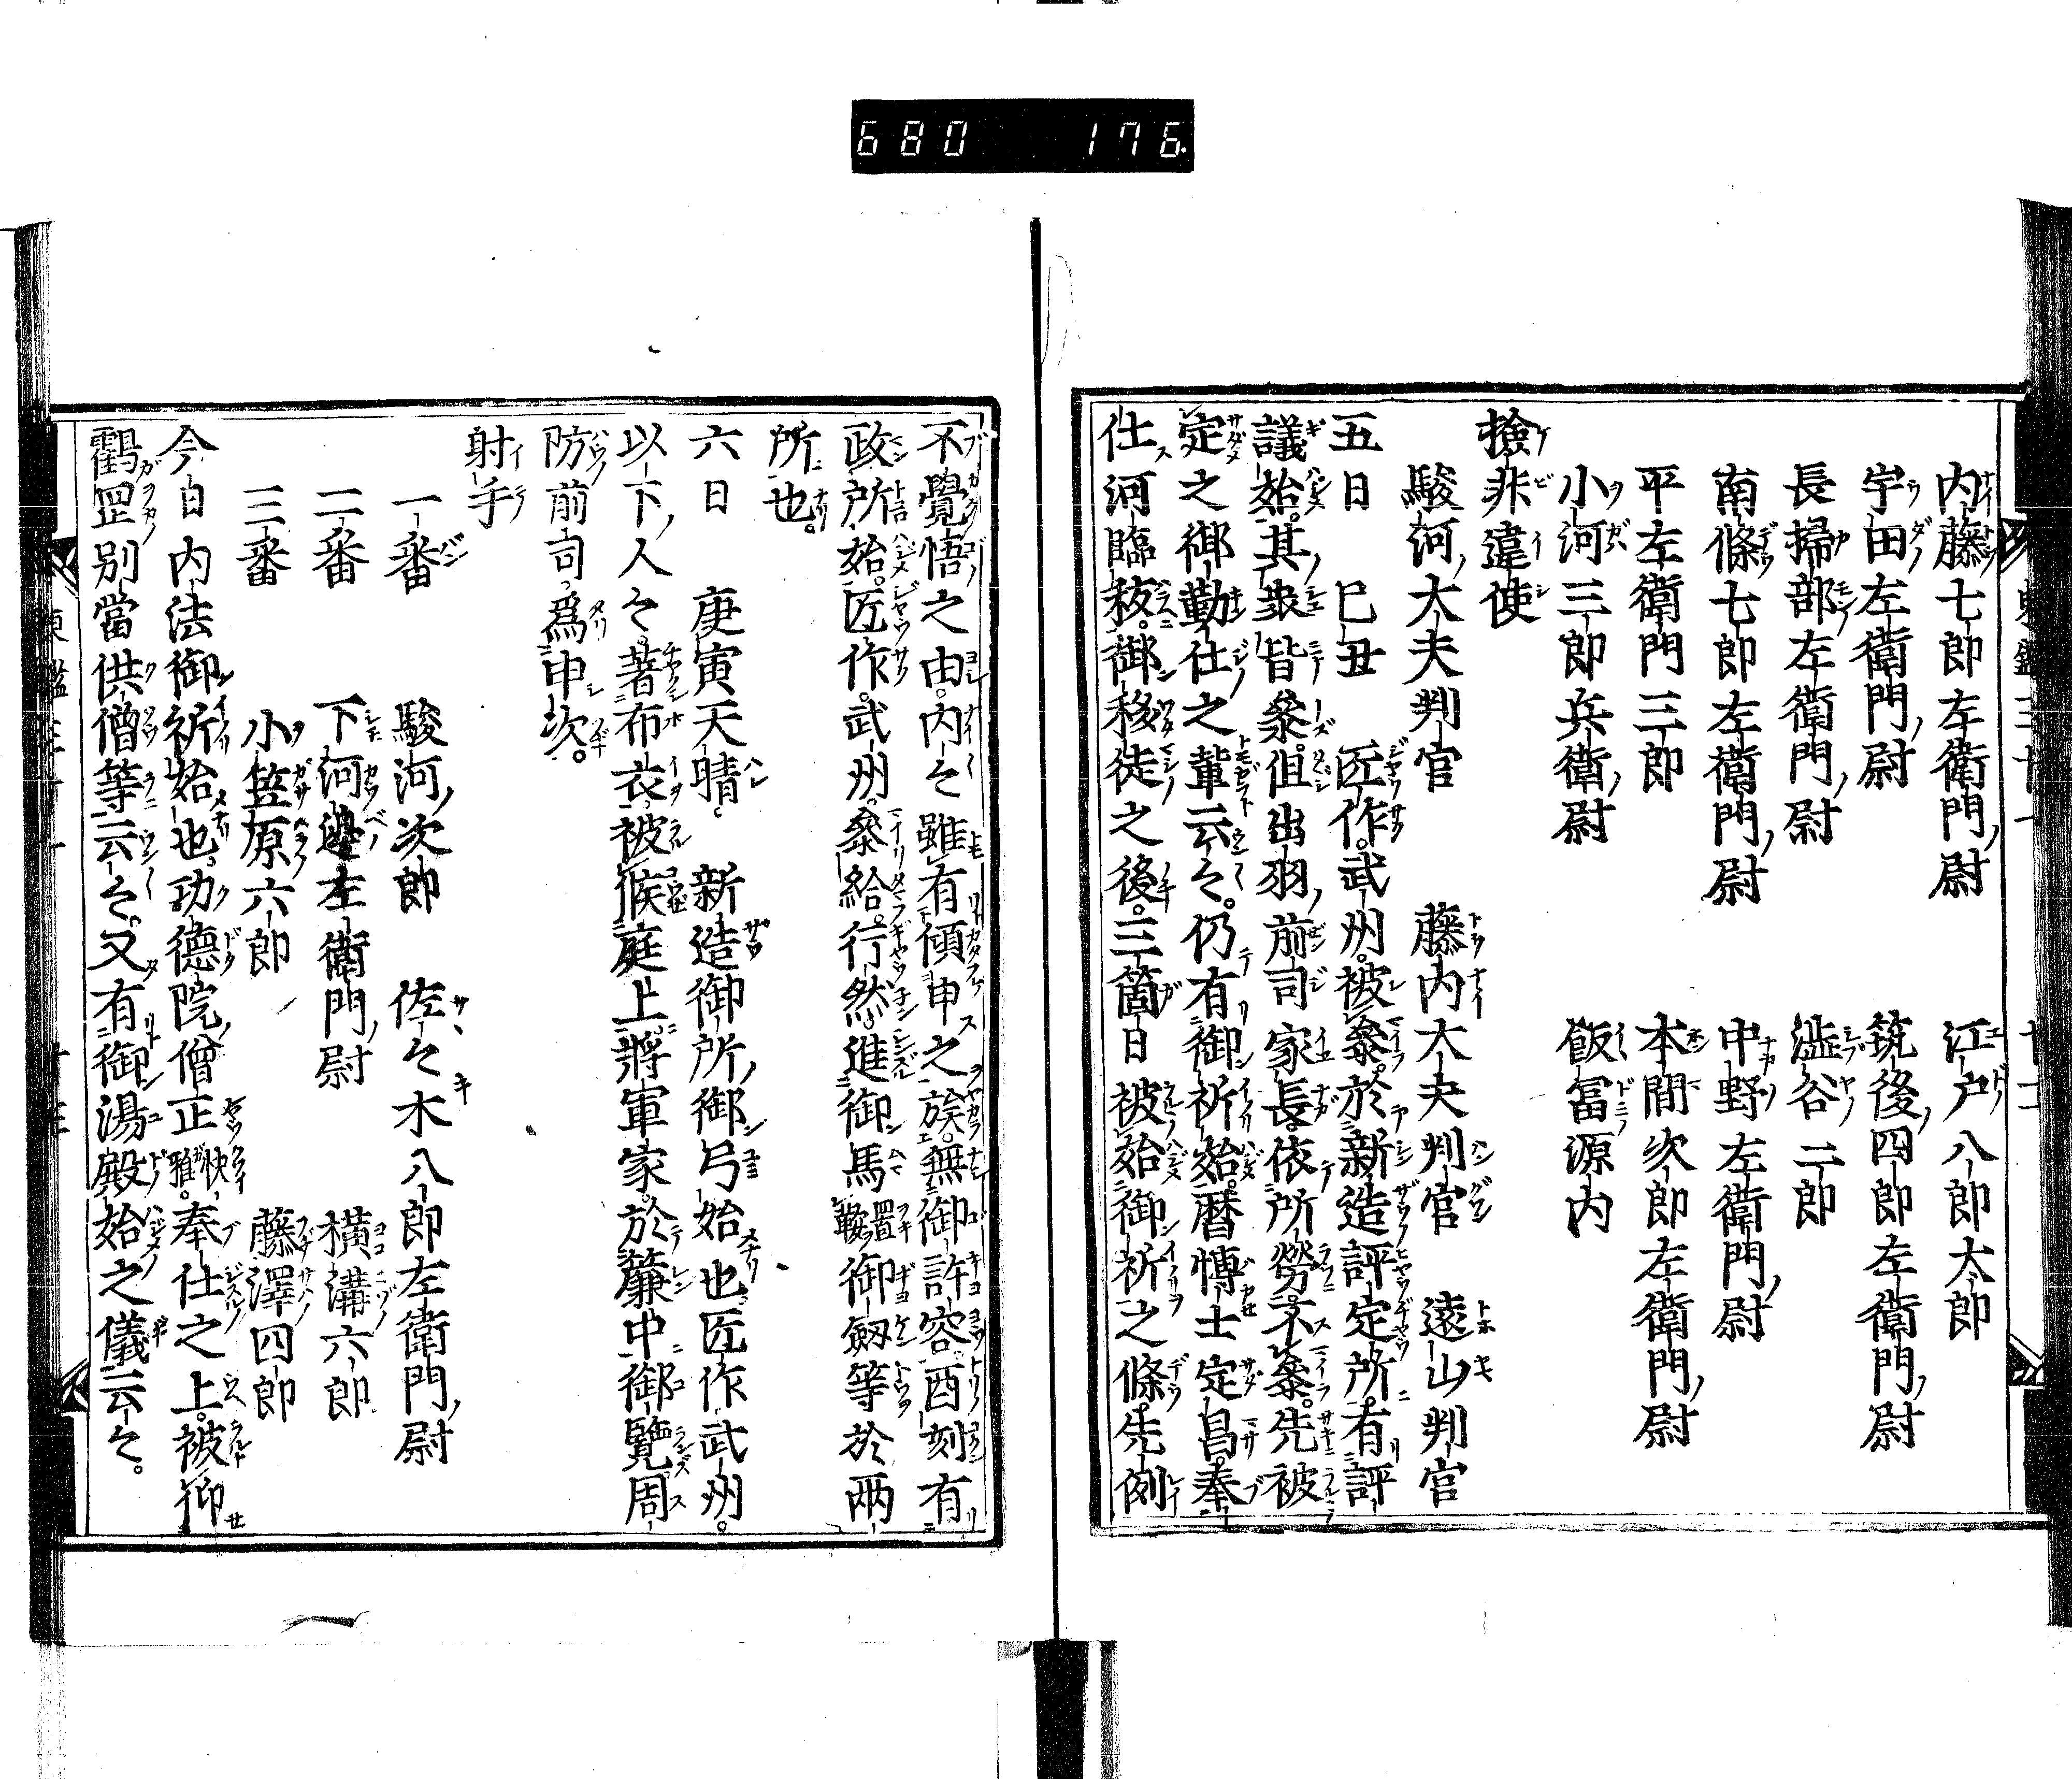 680 176
内藤七郎左衛門尉 江戸八郎太郎
宇田左衛門尉 筑後四郎左衛門尉
長掃部左衛門尉 澁谷二郎
南條七郎左衛門尉 中野左衛門尉
平左衛門三郎 本間次郎左衛門尉
小河三郎兵衛尉 飯冨源内
撿非違使
駿河大夫判官 藤内大夫判官 遠山判官
五日 己丑 匠作。武州。被参。於新造評定所。有評
議始。其衆皆参。但出羽前司家長。依所勞。不参。先被
定之御勤仕之輩云々。仍有御祈始。暦博士定昌。奉
仕河臨秡。御移徒之後。三箇日被始御祈之條。先例
不覺悟之由。内々雖有傾申之族。無御許容。酉刻有
政所始。匠作。武州。参給。行然。進御馬置鞍御劔等於兩
所也。
六日 庚寅天晴。 新造御所御弓始也。匠作武州。
以下人々。著布衣。被候庭上。將軍家。於簾中御覽。周
防前司。爲申次。
射手
一番 駿河次郎 佐々木八郎左衛門尉
二番 下河邊左衛門尉 横溝六郎
三番 小笠原六郎 藤澤四郎
今日内法御祈始也。功德院僧正快雅。奉仕之上。被仰
鸖岡別當供僧等云々。又有御湯殿始之儀云々。